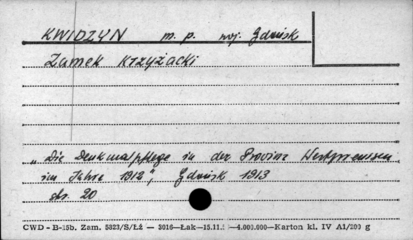 KWIDZYN m. p. woj. Gdańsk
Zamek krzyżacki
„Die Denkmalpflege in der Provinz Westpreussen
im Jahre 1912", Gdańsk 1913
str. 20
CWD - B-15b. Zam. 5323/S/Łź — 3016—Łak—15.11.5 —4.000.000—Karton kl. IV A1/200 g